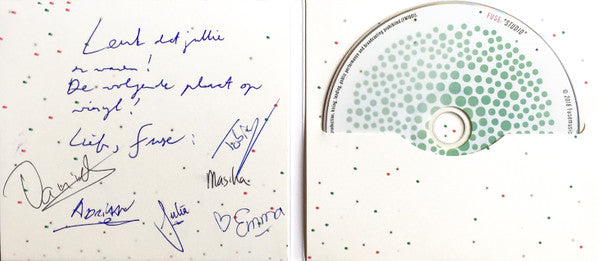 Leuk dat jullie
er waren!
De volgende plaat op
vinyl!
Liefs, Fuse:
Tobie
Daniel
Masika
Adriaan
Julia
Emma
FUSE "STUDIO"
© 2018 Fusemusic